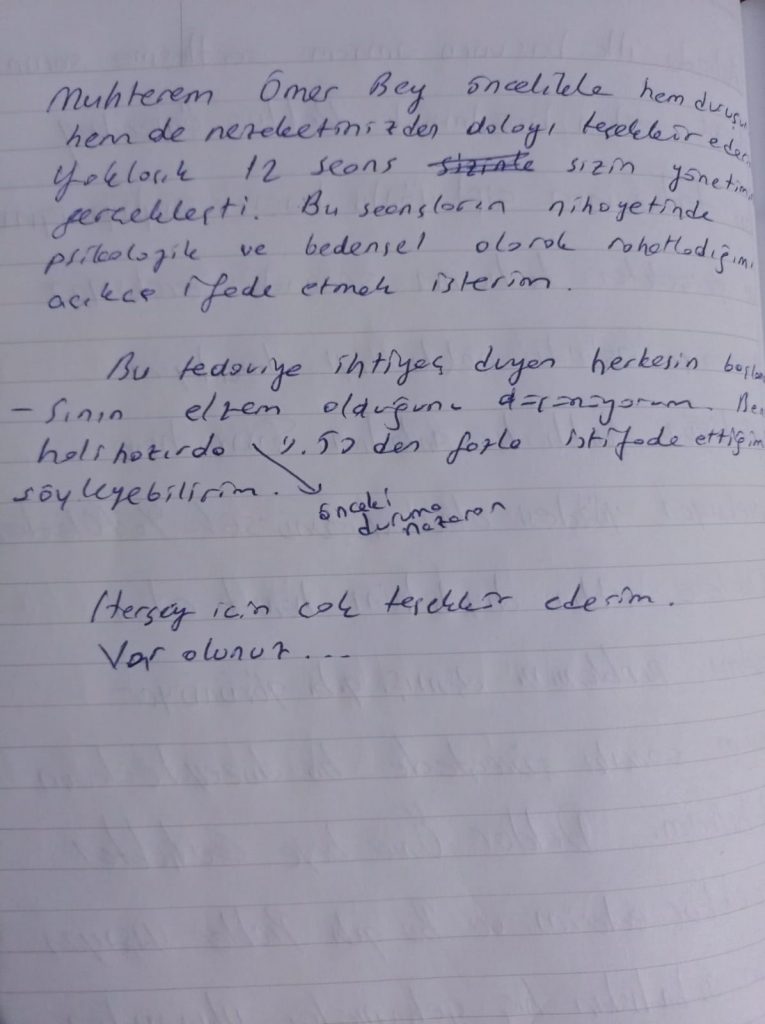 Muhterem Ömer Bey öncelikle hem duruşu
hem de nezaketinizden dolayı teşekkür eder
Yaklaşık 12 seans sizinle sizin yönetim
gerçekleşti. Bu seansların nihayetinde
psikolojik ve bedensel olarak rahatladığım
açıkça ifade etmek isterim.
Bu tedaviye ihtiyaç duyan herkesin başla
- Sının elzem olduğunu düşünüyorum. Ben
halihazırda %.50 den fazla istifade ettiğim
söyleyebilirim.
önceki
duruma
nazaran
Herşey için çok teşekkür ederim.
Var olunuz...